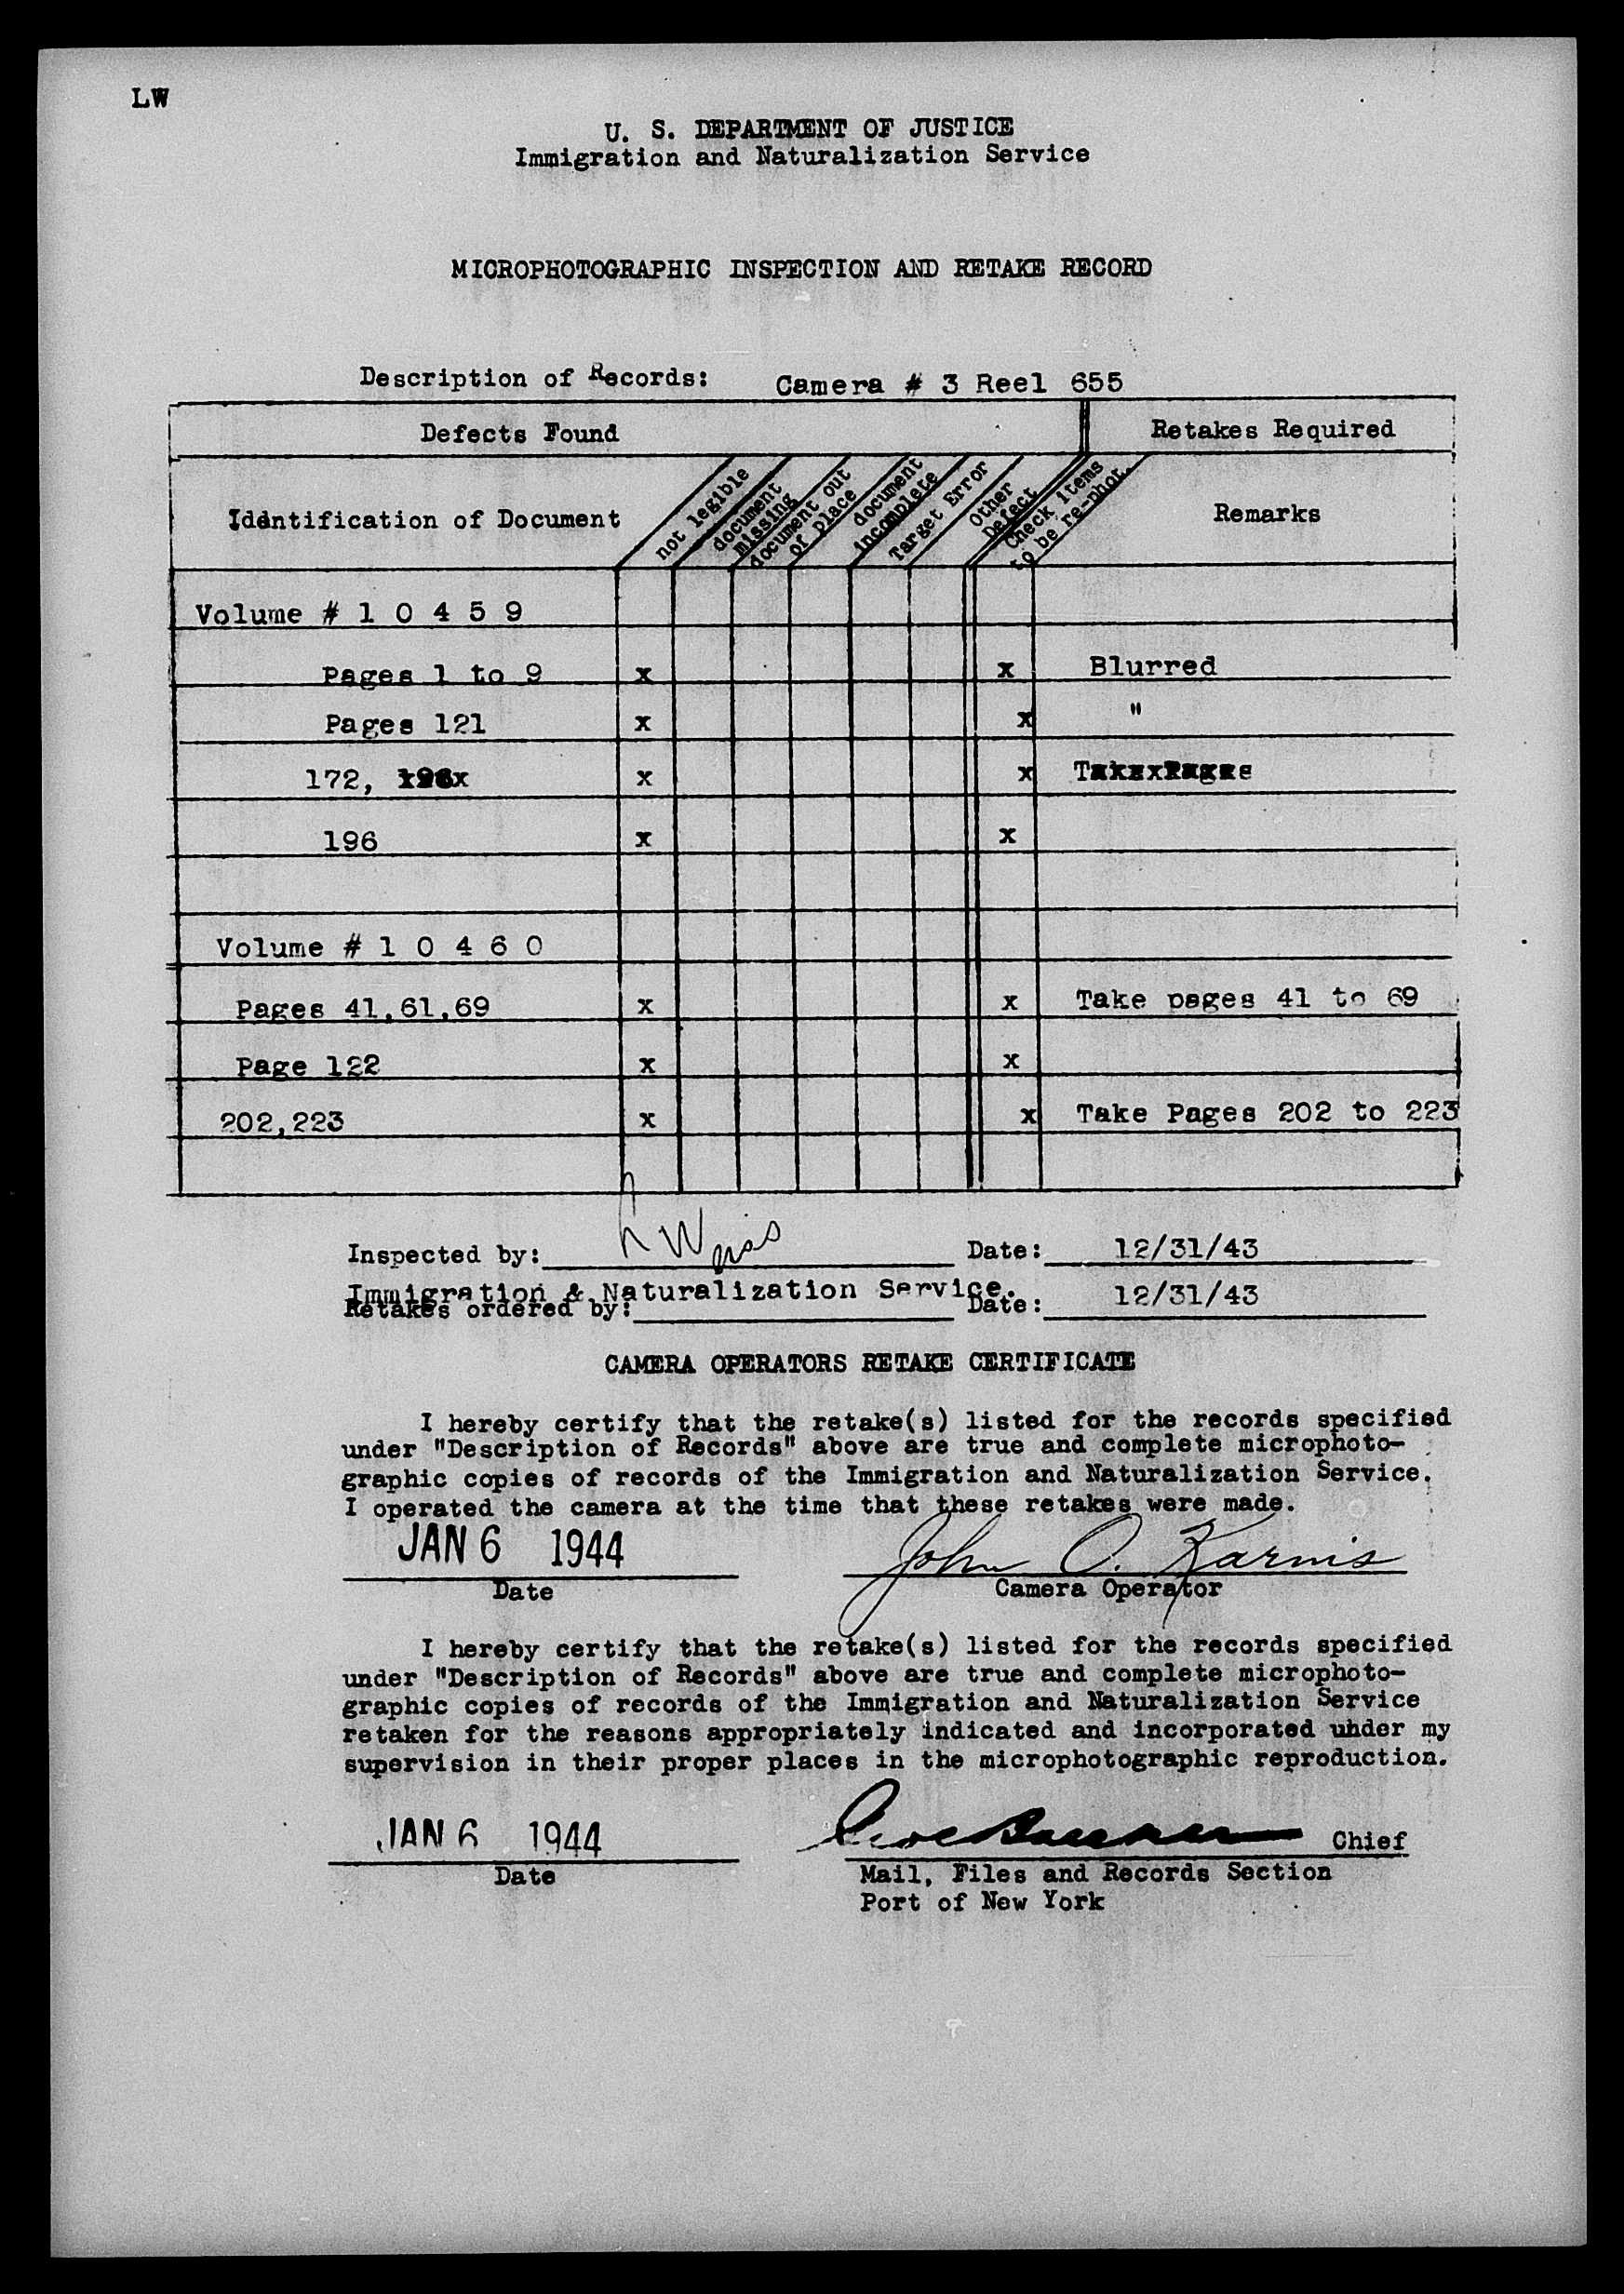 LW
U. S. DEPARTMENT OF JUSTICE
Immigration and Naturalization Service
MICROPHOTOGRAPHIC INSPECTION AND RETAKE RECORD
Description of Records: Camera # 3 Reel 655
Defects Found Retakes Required
Identification of Document
not legible
document missing
document out of place
document incomplete
Target Error
Other Defect
Check items to be re-phot.
Remarks
Volume # 1 0 4 5 9
Pages 1 to 9 x x Blurred
Pages 121 x x "
172, x x
196 x x
Volume # 1 0 4 6 0
Pages 41,61,69 x x Take pages 41 to 69
Page 122 x x
202,223 x x Take Pages 202 to 223
Inspected by: L Weiss Date: 12/31/43
Immigration & Naturalization Service.
Retakes ordered by: Date: 12/31/43
CAMERA OPERATORS RETAKE CERTIFICATE
I hereby certify that the retake(s) listed for the records specified
under "Description of Records" above are true and complete microphoto-
graphic copies of records of the Immigration and Naturalization Service.
I operated the camera at the time that these retakes were made.
JAN 6 1944 John O. Karnis
Date Camera Operator
I hereby certify that the retake(s) listed for the records specified
under "Description of Records" above are true and complete microphoto-
graphic copies of records of the Immigration and Naturalization Service
retaken for the reasons appropriately indicated and incorporated under my
supervision in their proper places in the microphotographic reproduction.
JAN 6 1944 Chief
Date Mail, Files and Records Section
Port of New York